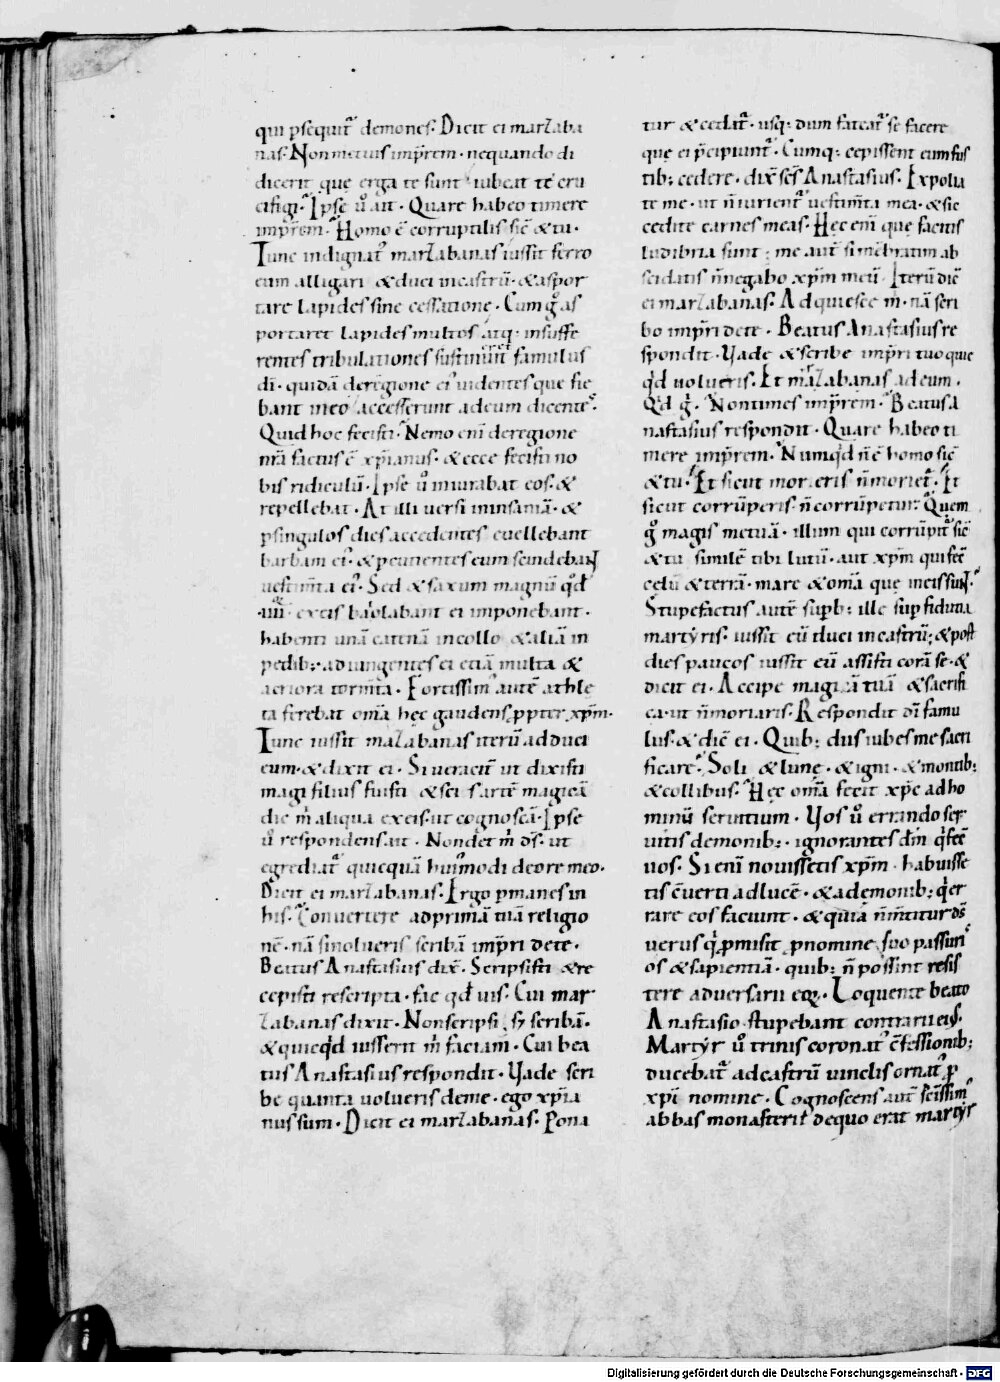 qui ꝑsequit̃ demones. Dicit ei marzaba
nas. Non metuis imꝑrem. nequando di
dicerit que erga te sunt iubeat te cru
cifigi. Ipse u᷎ ait. Quare habeo timere
imꝑrem. Homo ẽ corruptilis sic̃ & tu.
Tunc indignat̃ marzabanas iussit ferro
eum alligari & duci in castrũ. & aspor
tare lapides sine cessatione. Cum g̊ as
portaret lapides multos atq; insuffe
rentes tribulationes sustinuit famulus
di̅. quidã deregione eiꝰ uidentes que fie
bant in eo accesserunt ad eum dicentes.
Quid hoc fecisti. Nemo eni̅ deregione
nr̃a factus ẽ xp̅ianus. & ecce fecisti no
bis ridiculũ. Ipse u᷎ mirabat eos. &
repellebat. At illi uersi in insaniã. &
ꝑsingulos dies accedentes euellebant
barbam eiꝰ. & ꝑcutientes eum scindebant
uestim̃ta eiꝰ. Sed & saxum magnũ qd̃
.iiii. ex eis baiolabant ei imponebant.
habenti unã catenã in collo & aliã in
pedib; adiungentes ei etiã multa &
acriora torm̃ta. Fortissimꝰ autẽ athle
ta ferebat om̃a hęc gaudens ꝓpter xp̅m.
Tunc iussit mazabanas iterũ adduci
eum. & dixit ei. Si ueracit̃ ut dixisti
magi filius fuisti & scis artẽ magicã
dic m̃ aliqua ex eis. ut cognoscã. Ipse
u᷎ respondens ait. Non det m̃ ds̅. ut
egrediat̃ quicquã huiꝰmodi deore meo.
Dicit ei marzabanas. Ergo ꝑmanes in
his. Conuertere ad primã tuã religio
nẽ. nã si nolueris scribã imꝑri dete.
Beatus Anastasius dix̃. Scripsisti & re
cepisti rescripta. fac qd̃ uis. Cui mar
zabanas dixit. Non scripsi s; scribã.
& quicqd̃ iusserit m̃ faciam. Cui bea
tus Anastasius respondit. Vade scri
be quanta uolueris deme. ego xp̅ia
nus sum. Dicit ei marzabanas. Pona
tur & cedat̃. usq; dum fateat̃ se facere
que ei p̃cipiunt̃. Cumq; cepissent eum fus
tib; cedere. dix̃ sc̅s Anastasius. Expolia
te me. ut ñ iurient̃ uestim̃ta mea. & sic
cedite carnes meas. Hęc eni̅ que facitis
ludibria sunt; me aut̃ si mẽbratim ab
scidatis ñ negabo xp̅m meũ. Iterũ dic̃
ei marzabanas. Adquiesce m̃. nã scri
bo imꝑri dete. Beatus Anastasius re
spondit. Vade & scribe imꝑri tuo quic
qd̃ uolueris. Et mazabanas ad eum.
Qd̃ g̊. Non times imꝑrem. Beatus A
nastasius respondit. Quare habeo ti
mere imꝑrem. Numqd̃ ñ ẽ homo sic̃
& tu. Et sicut mor eris ñ moriet̃. Et
sicut corrũperis. ñ corrũpetur. Quem
g̊ magis metuã. illum qui corrũpit̃ sic̃
& tu similẽ tibi lutũ. aut xp̅m qui fec̃
celũ & terrã. mare & om̃a que in eis sunt.
Stupefactus autẽ suꝑb; ille sup fiducia
martyris. iussit eũ duci in castrũ; & post
dies paucos iussit eũ assisti corã se. &
dicit ei. Accipe magicã tuã & sacrifi
ca. ut ñ moriaris. Respondit di̅ famu
lus. & dic̃ ei. Quib; diis iubes me sacri
ficare. Soli & lunę. & igni. & montib;
& collibus. Hęc om̃a fecit xp̅c ad ho
minũ seruitium. Vos u᷎ errando ser
uitis demonib;. ignorantes dn̅m q̃ fec̃
uos. Si eni̅ nouissetis xp̅m. habuisse
tis cõuerti ad lucẽ. & a demonib; q̃ er
rare eos faciunt. & quia ñ m̃titur ds̅
uerus q̃ ꝓmisit ꝓ nomine suo passuri
os & sapientiã. quib; ñ possint resis
tere aduersarii eoꝝ. Loquente beato
Anastasio. stupebant contrarii eiꝰ.
Martyr u᷎ trinis coronatꝰ cõfessionib;
ducebat̃ ad castrũ uinclis ornatꝰ ꝓ
xp̅i nomine. Cognoscens aut̃ sc̅issimꝰ
abbas monasterii dequo erat martyr